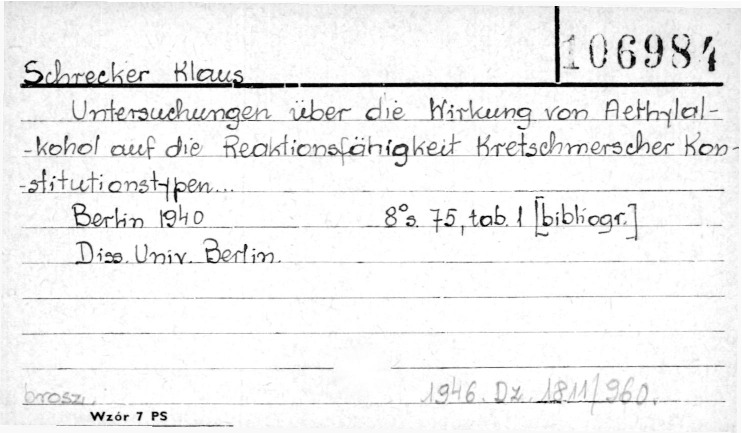 106984
Schrecker Klaus
Untersuchungen über die Wirkung von Aethylal-
-kohol auf die Reaktionsfähigkeit Kretschmerscher Kon-
-stitutionstypen...
Berlin 1940 8°s. 75, tab. 1 [bibliogr.]
Diss. Univ. Berlin.
brosz. 1946. Dz. 1811/960.
Wzór 7 PS